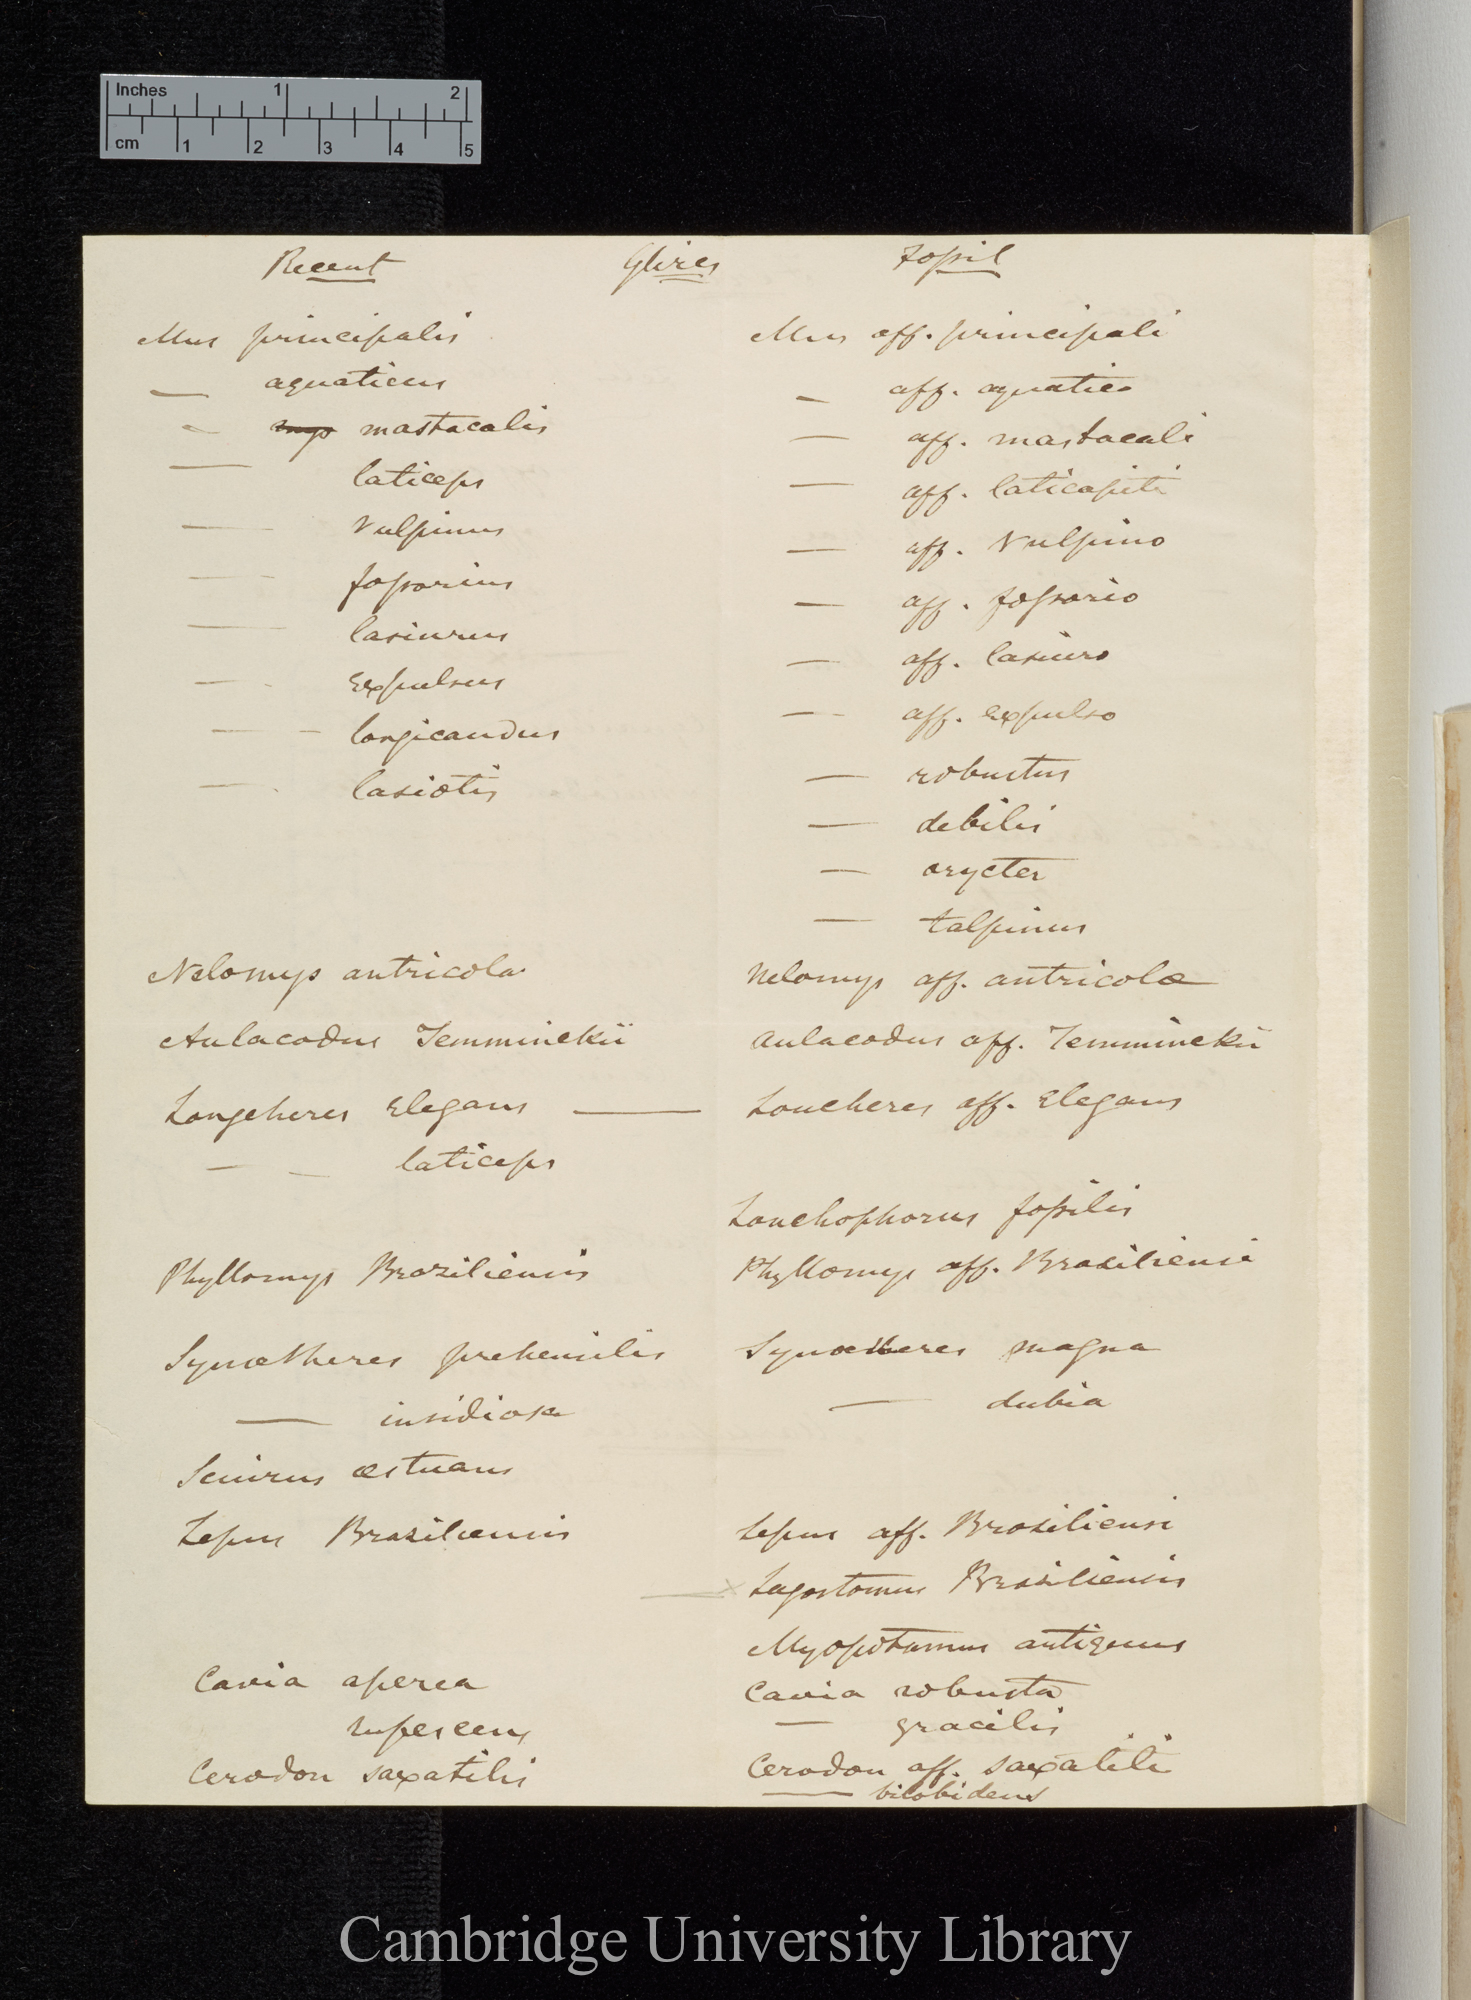 Inches 1 2
cm 1 2 3 4 5
Recent Glires Fossil
Mus principalis Mus aff. principali
— aquaticus — aff. aquatico
— mastacalis — aff. mastacali
— laticeps — aff. laticipiti
— Vulpinus — aff. Vulpino
— fossorius — aff. fossorio
— lasiurus — aff. lasiuro
— Expulsus — aff. Expulso
— – longicaudus — robustus
— lasiotis — debilis
— orycter
— talpinus
Nelomys antricola Nelomys aff. antricolæ
Aulacodus Temminckii Aulacodus aff. Temminckii
Longcheres Elegans — Loncheres aff. Elegans
— – laticeps
Lonchophorus fossilis
Phyllomys Braziliensis Phyllomys aff. Brasiliensi
Synœtheres prehensilis Synœtheres magna
— insidiosa — dubia
Sciurus æstuans
Lepus Braziliensis Lepus aff. Brasiliensi
— x Lagostomus Brasiliensis
Myopotamus antiquus
Cavia aperea Cavia robusta
rufescens — gracilis
Cerodon saxatilis Cerodon aff. saxatili
— bilobidens
Cambridge University Library